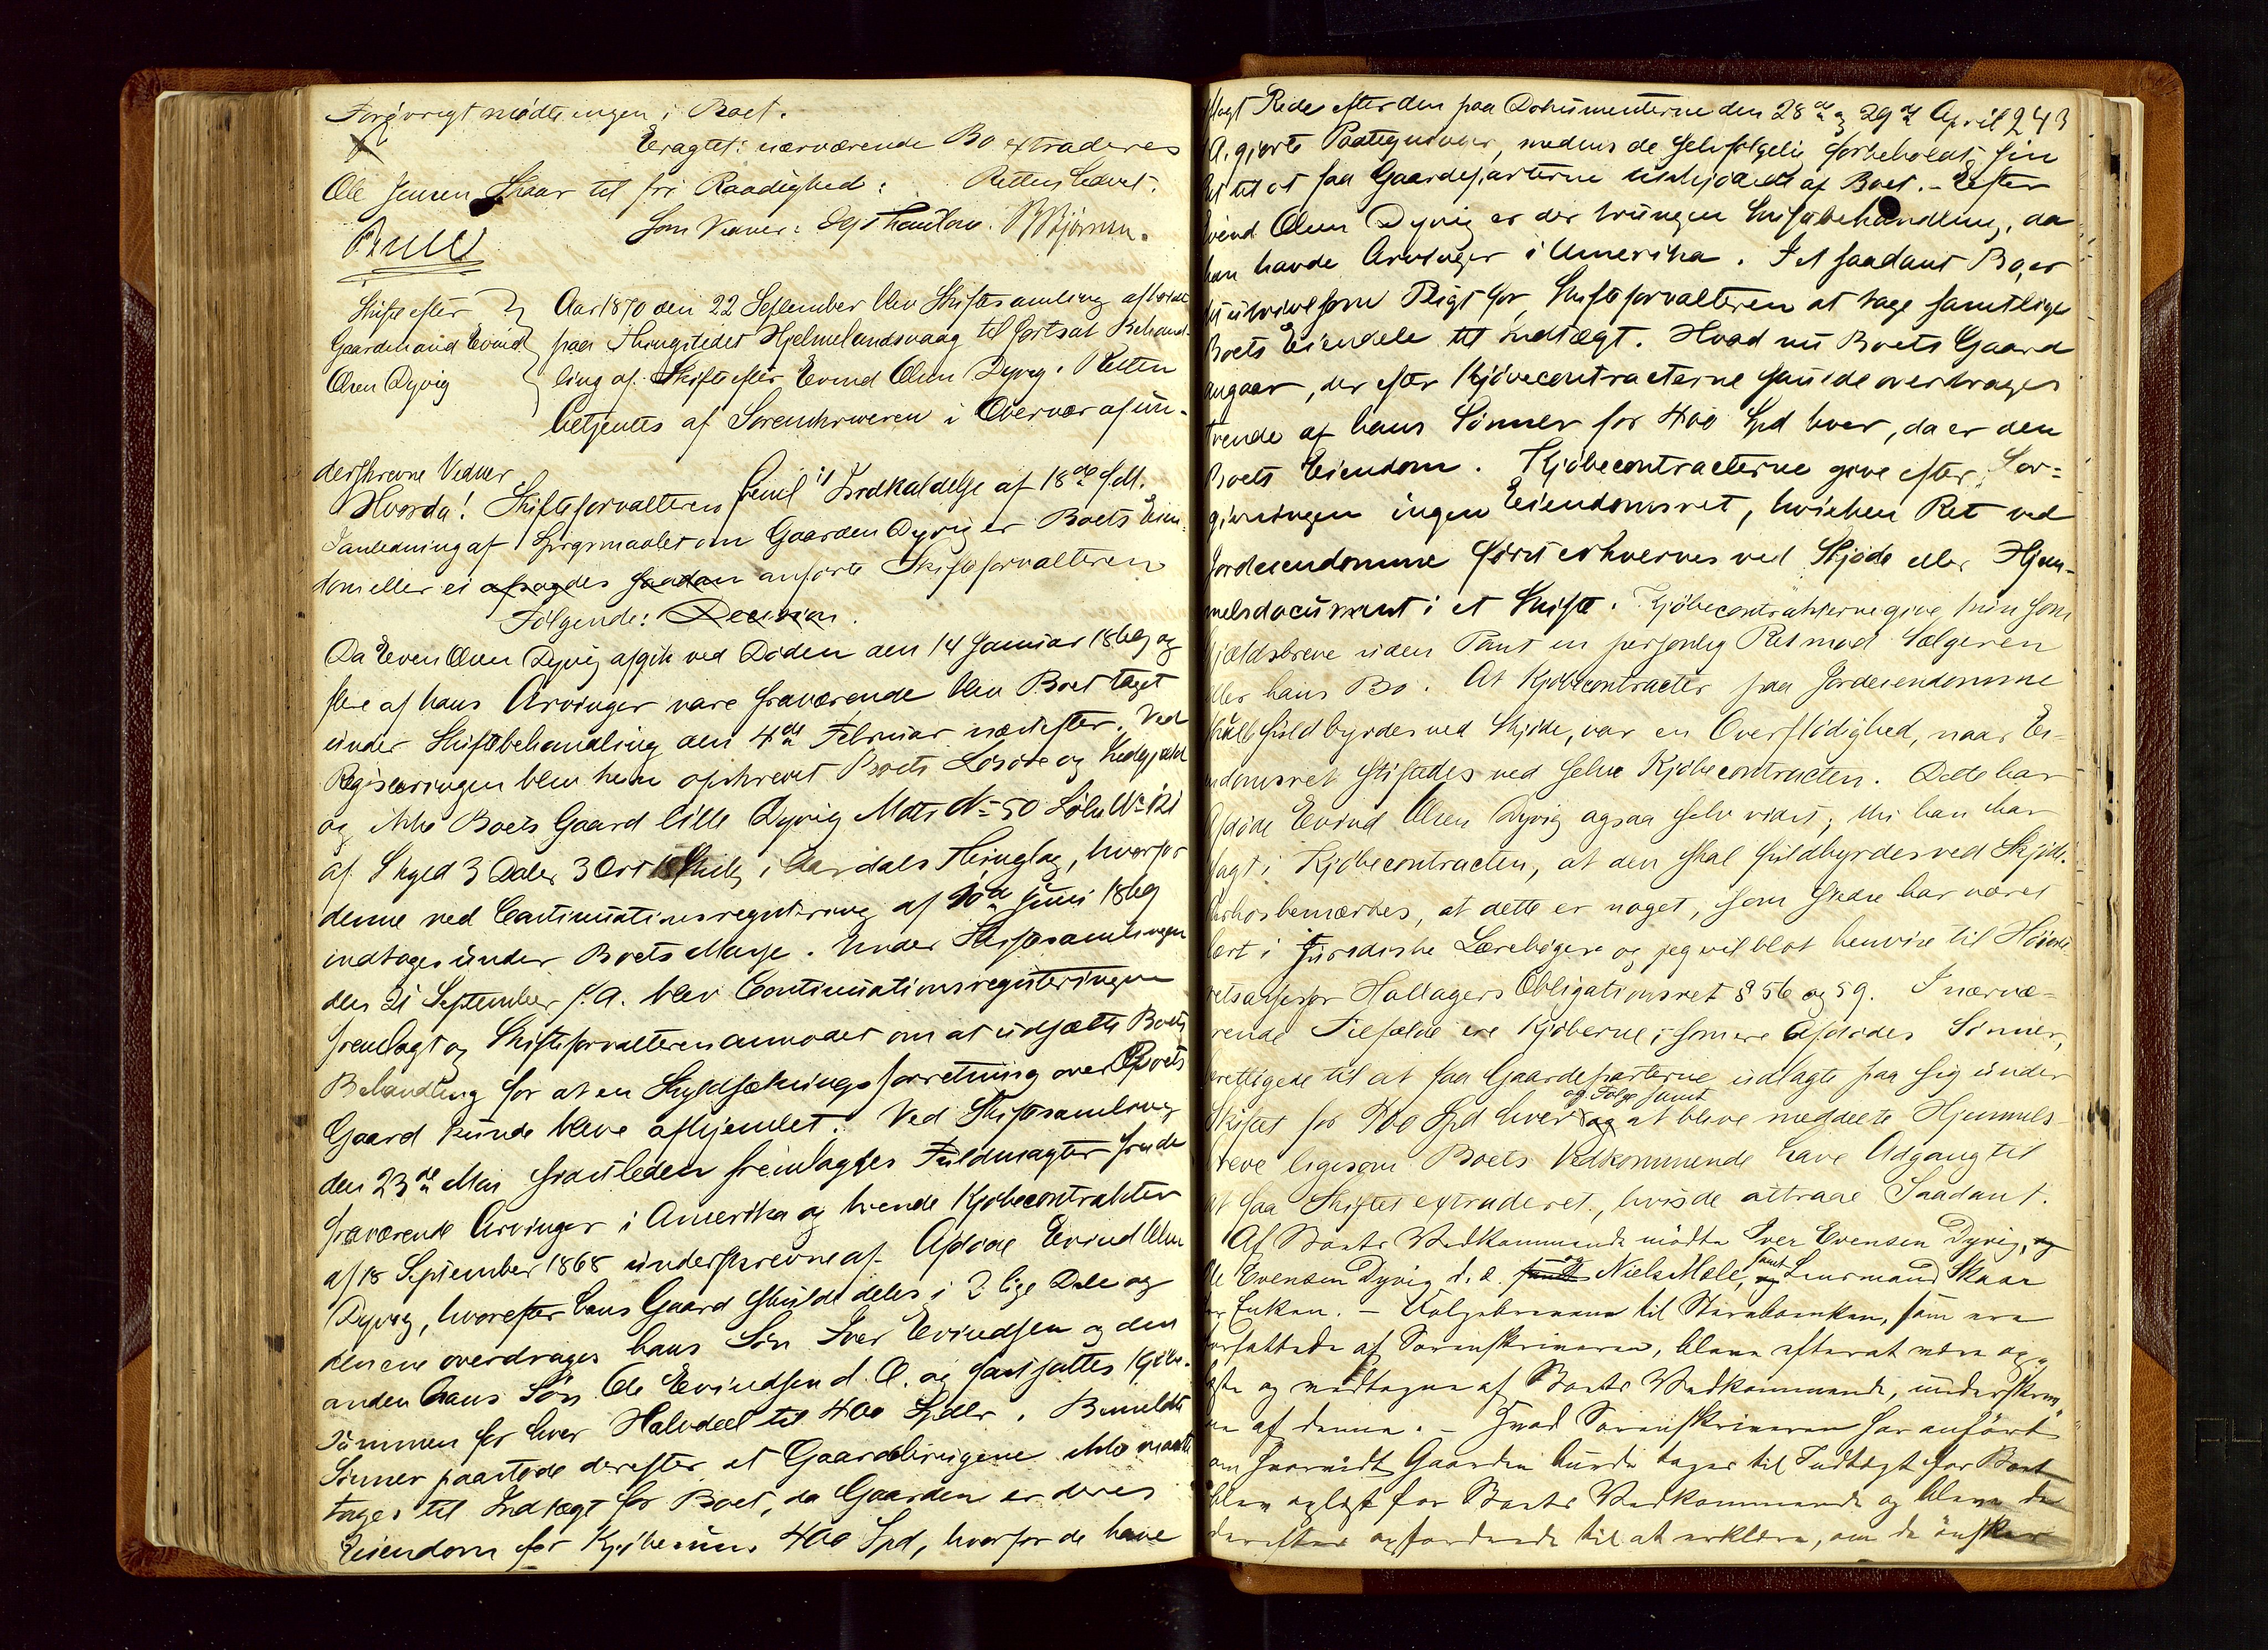 Forøvrigt mødte ingen i Boet.
Eragtet: nærværende Bo extraderes
Ole Jensen Skaar til fri Raadighed: Retten hævet.
Som Vidner:
Skifte efter
Gaardmand Evind
Olsen Dyvig
Aar 1870 den 22 September blev Skiftesamling afholdt
paa Thingstedet Hjelmelandsvaag til fortsat Behand-
ling af Skifte efter Evind Olsen Dyvig. Retten
betjentes af Sorenskriveren i Overvær af un-
derskrevne Vidner
Hvorda! Skifteforvalteren freml. Indkaldelse af 18de f.M.
I anledning af Spørgsmaalet om Gaarden Dyvig er Boets Eien-
dom eller ei afsagdes saadan anførte Skifteforvalteren
Følgende: Decision.
Da Even Olsen Dyvig afgik ved Døden den 14 Januar 1869 og
flere af hans Arvinger vare fraværende blev Boet taget
under Skiftebehandling den 4de Februar næstefter. Ved
Registreringen blev kun opskrevet Boets Løsøre og
og ikke Boets Gaard lille Dyvig Matr No 50 Løbe No 121
af Skyld 3 Daler 3 Ort Skill i Aardals Thinglag, hvorfor
denne ved Continuationsregistrering af Juni 1869
indtoges under Boets Masse. Under Skiftesamlingen
den 21 September s.A. blev Continuationsregistreringen
fremlagt og Skifteforvalteren anmodet om at udsætte Boets
Behandling for at en Skyldsætningsforretning over Boets
Gaard kunde blive afhjemlet. Ved Skiftesamling
den 23de Mai sidstleden fremlagdes Fuldmagter fra de
fraværende Arvinger i Amerika og tvende Kjøbecontrakter
af 18 September 1868 underskrevne af Afdøde Evind Olsen
Dyvig, hvorefter hans Gaard skulde deles i 2 lige Dele og
den ene overdrages hans Søn Iver Evindsen og den
anden hans Søn Ole Evindsen d. Æ. og fastsattes Kjøbe-
summen for hver Halvdeel til 400 Spdlr. Bemeldte
Sønner paastode derefter at Gaardebrugene ikke maatte
tages til Indtægt for Boet, da Gaarden er deres
Eiendom for Kjøbesum. 400 Spd, hvorfor de have
Rede efter den paa Dokumenterne den 28de og 29de April 243
d.A. gjorte Paategninger, medens de selvfølgelig forbeholdt sin
Ret til at faa Gaardeparterne udskjødede af Boet. - Efter
Evind Olsen Dyvig er der tvungen Skiftebehandling, da
han havde Arvinger i Amerika. I et saadant Bo, er
det utvivlsom Pligt for Skifteforvalteren at tage samtlige
Boets Eiendele til Indtægt. Hvad nu Boets Gaard
angaar, der efter Kjøbecontracterne skulde overdrages
tvende af hans Sønner for 400 Spd hver, da er den
Boets Eiendom. Kjøbecontracterne give efter Lov-
givningen ingen Eiendomsret, hvilken Ret ved
Jordeiendomme først erhverves ved Skjøde eller Hjem-
melsdocument i et Skifte. Kjøbecontrakterne give kun som
Gjældsbreve uden Pant en personlig Ret mod Sælgeren
eller hans Bo. At Kjøbecontracter paa Jordeiendomme
skulle fuldbyrdes ved Skjøde, var en Overflødighed, naar Ei-
endomsret stiftedes ved selve Kjøbecontracten. Dette har
Afdøde Evind Olsen Dyvig ogsaa selv vidst, thi han har
sagt i Kjøbecontracten, at den skal fuldbyrdes ved Skjøde.
Herhos bemærkes, at dette er noget, som stedse har været
lært i juridiske Lærebøger og jeg vil blot henvise til Høieste-
retsassessor Hallagers Obligationsret § 56 og 59. I nærvæ-
rende Tilfælde ere Kjøberne, som ere Afdødes Sønner,
berettigede til at faa Gaardeparterne udlagte paa sig under
og Følge samt
Skiftet for 400 Spd hver og at blive meddeelte Hjemmels-
breve ligesom Boets Vedkommende have Adgang til
at faa Skiftet extraderet, hvis de attraae Saadant.
Af Boets Vedkommende mødte Iver Evensen Dyvig, og
Ole Evensen Dyvig d.æ. samt og Niels Mæle, og samt Lensmand Skaar
for Enken. - Følgebrevene til Stervboenken, som ere
forfattede af Sorenskriveren, bleve efterat være op-
læste og vedtagne af Boets Vedkommende, underskrev-
ne af denne. - Hvad Sorenskriveren har anført
om hvorvidt Gaarden burde tages til Indtægt for Boet
blev oplæst for Boets Vedkommende og bleve de
derefter opfordrede til at erklære, om de ønsker